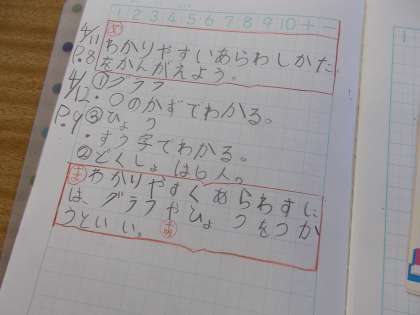 1 2 3 4 5 6 7 8 9 10 +
4/11 め
P.8 わかりやすいあらわしかた
をかんがえよう。
4/12 ①グラフ
・○のかずでわかる。
P.9 ③ひょう
・すう字でわかる。
②どくしょは6人。
ま わかりやすくあらわすに
は、グラフやひょうをつか
うといい。